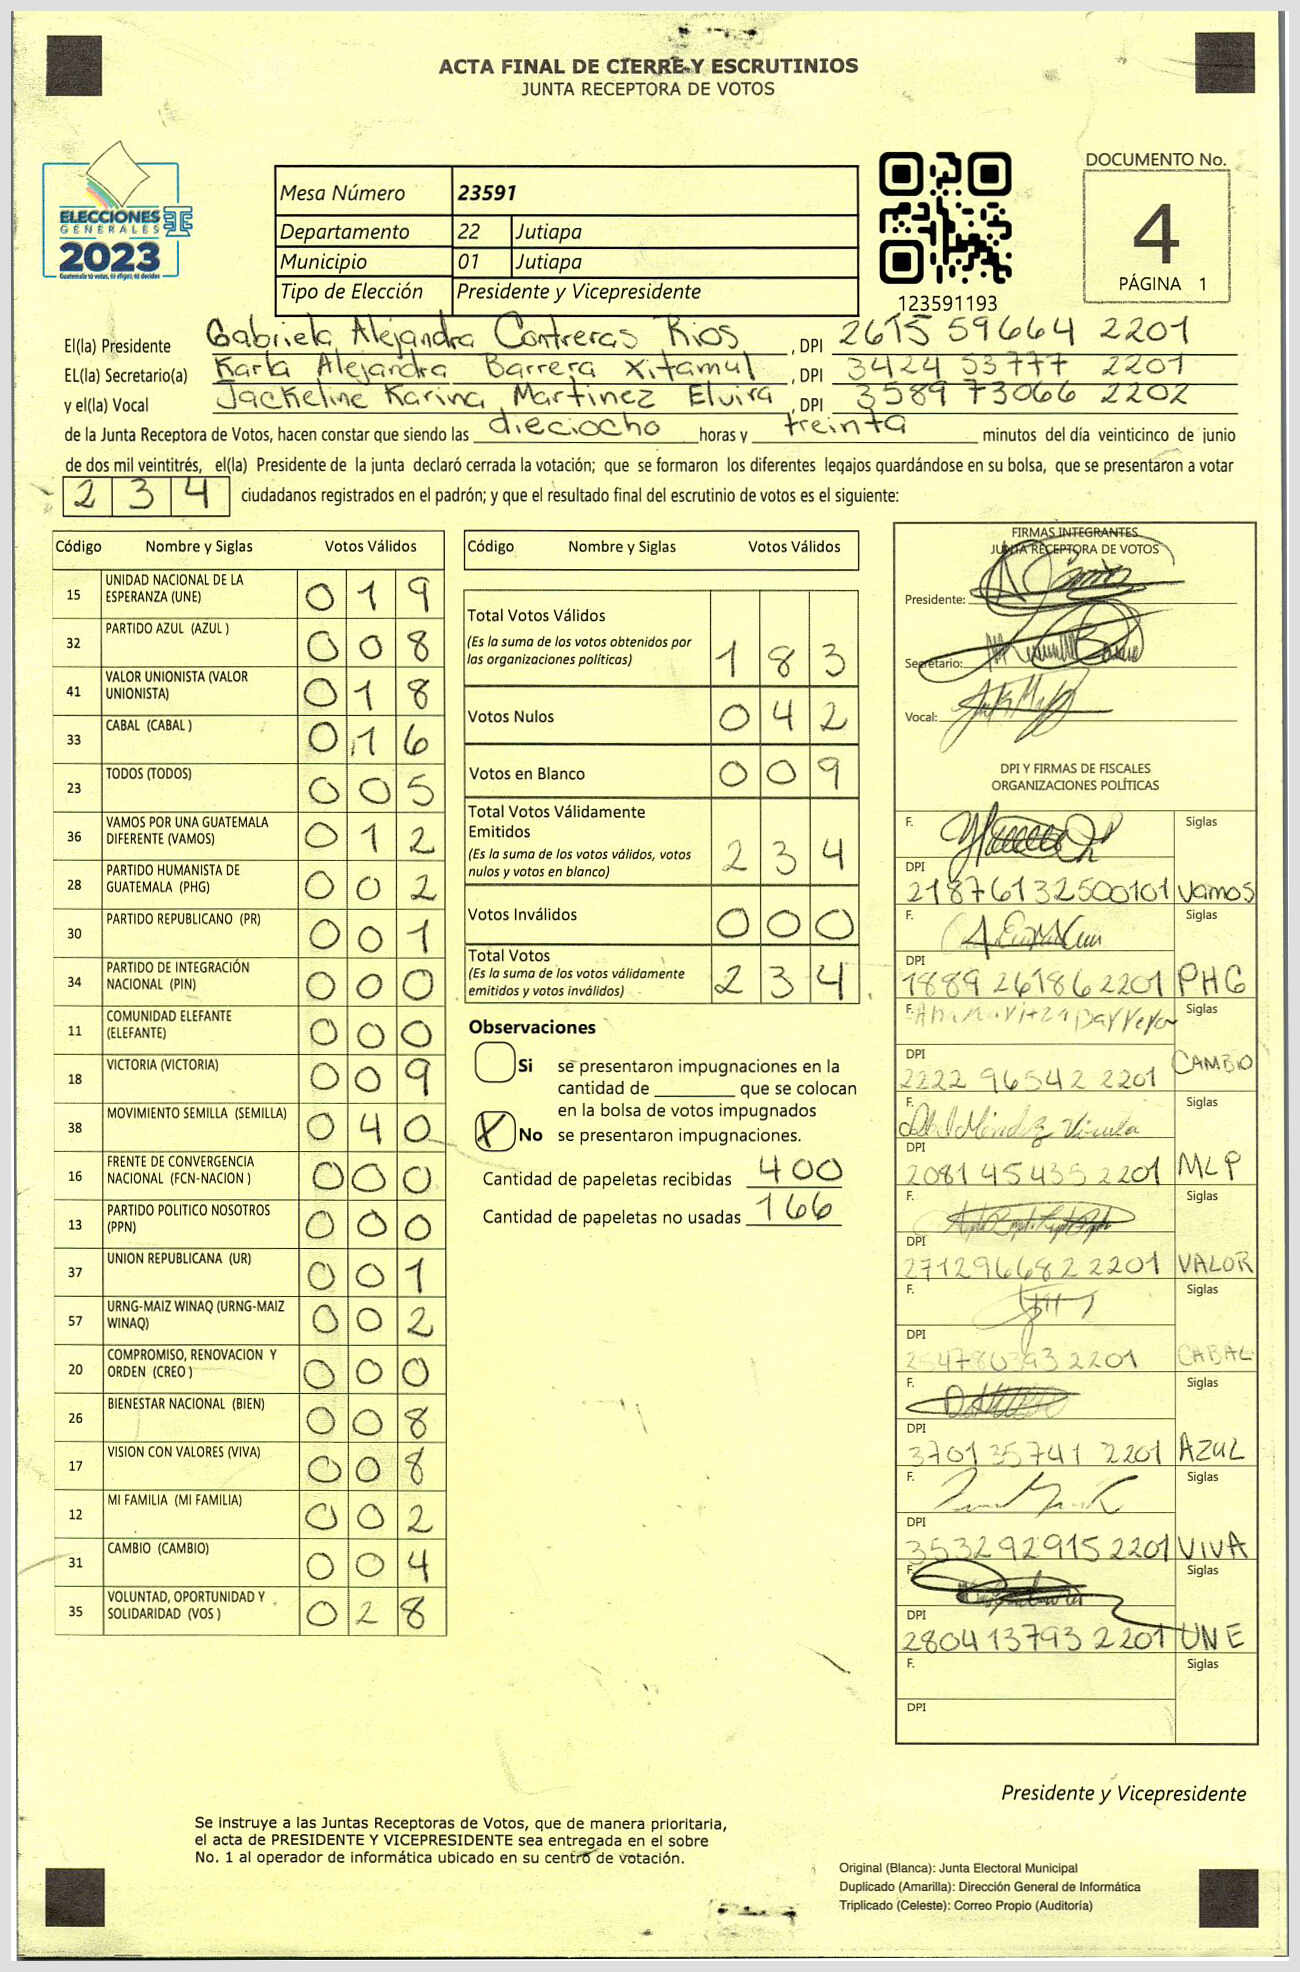 ACTA FINAL DE CIERRE Y ESCRUTINIOS
JUNTA RECEPTORA DE VOTOS
ELECCIONES
GENERALES
2023
Guatemala tú votas, tú eliges, tú decides
Mesa Número 23591
Departamento 22 Jutiapa
Municipio 01 Jutiapa
Tipo de Elección Presidente y Vicepresidente
123591193
DOCUMENTO No.
4
PÁGINA 1
El(la) Presidente Gabriela Alejandra Contreras Rios, DPI 2615 59664 2201
EL(la) Secretario(a) Karla Alejandra Barrera Xitamul, DPI 3424 53777 2201
y el(la) Vocal Jackeline Karina Martinez Elvira, DPI 3589 73066 2202
de la Junta Receptora de Votos, hacen constar que siendo las dieciocho horas y treinta minutos del día veinticinco de junio
de dos mil veintitrés, el(la) Presidente de la junta declaró cerrada la votación; que se formaron los diferentes legajos guardándose en su bolsa, que se presentaron a votar
234 ciudadanos registrados en el padrón; y que el resultado final del escrutinio de votos es el siguiente:
Código Nombre y Siglas Votos Válidos
15 UNIDAD NACIONAL DE LA ESPERANZA (UNE) 019
32 PARTIDO AZUL (AZUL ) 008
41 VALOR UNIONISTA (VALOR UNIONISTA) 018
33 CABAL (CABAL ) 016
23 TODOS (TODOS) 005
36 VAMOS POR UNA GUATEMALA DIFERENTE (VAMOS) 012
28 PARTIDO HUMANISTA DE GUATEMALA (PHG) 002
30 PARTIDO REPUBLICANO (PR) 001
34 PARTIDO DE INTEGRACIÓN NACIONAL (PIN) 000
11 COMUNIDAD ELEFANTE (ELEFANTE) 000
18 VICTORIA (VICTORIA) 009
38 MOVIMIENTO SEMILLA (SEMILLA) 040
16 FRENTE DE CONVERGENCIA NACIONAL (FCN-NACION ) 000
13 PARTIDO POLITICO NOSOTROS (PPN) 000
37 UNION REPUBLICANA (UR) 001
57 URNG-MAIZ WINAQ (URNG-MAIZ WINAQ) 002
20 COMPROMISO, RENOVACION Y ORDEN (CREO ) 000
26 BIENESTAR NACIONAL (BIEN) 008
17 VISION CON VALORES (VIVA) 008
12 MI FAMILIA (MI FAMILIA) 002
31 CAMBIO (CAMBIO) 004
35 VOLUNTAD, OPORTUNIDAD Y SOLIDARIDAD (VOS ) 028
Código Nombre y Siglas Votos Válidos
Total Votos Válidos
(Es la suma de los votos obtenidos por
las organizaciones políticas) 183
Votos Nulos 042
Votos en Blanco 009
Total Votos Válidamente
Emitidos
(Es la suma de los votos válidos, votos
nulos y votos en blanco) 234
Votos Inválidos 000
Total Votos
(Es la suma de los votos válidamente
emitidos y votos inválidos) 234
Observaciones
Si se presentaron impugnaciones en la
cantidad de ________ que se colocan
en la bolsa de votos impugnados
X No se presentaron impugnaciones.
Cantidad de papeletas recibidas 400
Cantidad de papeletas no usadas 166
FIRMAS INTEGRANTES
JUNTA RECEPTORA DE VOTOS
Presidente:
Secretario:
Vocal:
DPI Y FIRMAS DE FISCALES
ORGANIZACIONES POLÍTICAS
F. Siglas
DPI
2187613250010​1 Vamos
F. Siglas
DPI
1889 26186 2201 PHG
F. Siglas
DPI
2222 96542 2201 CAMBIO
F. Siglas
DPI
2081 45435 2201 MLP
F. Siglas
DPI
271296682 2201 VALOR
F. Siglas
DPI
254780393 2201 CABAL
F. Siglas
DPI
3701 35741 2201 AZUL
F. Siglas
DPI
353292915 2201 VIVA
F. Siglas
DPI
2804 13793 2201 UNE
F. Siglas
DPI
Presidente y Vicepresidente
Se instruye a las Juntas Receptoras de Votos, que de manera prioritaria,
el acta de PRESIDENTE Y VICEPRESIDENTE sea entregada en el sobre
No. 1 al operador de informática ubicado en su centro de votación.
Original (Blanca): Junta Electoral Municipal
Duplicado (Amarilla): Dirección General de Informática
Triplicado (Celeste): Correo Propio (Auditoría)